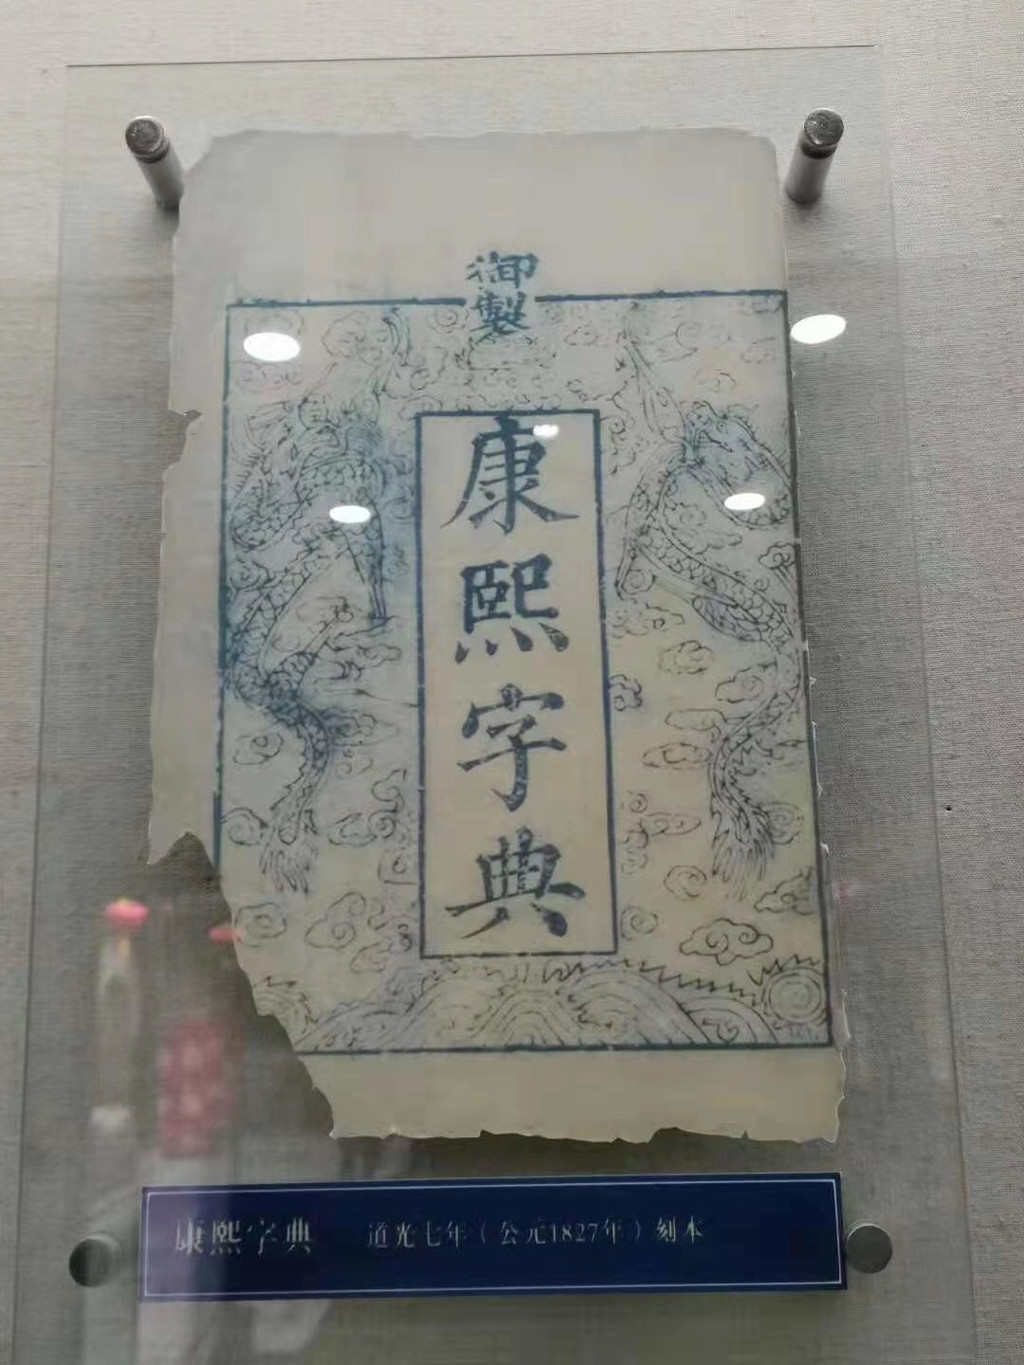 御製
康熙字典
康熙字典 道光七年（公元1827年）刻本